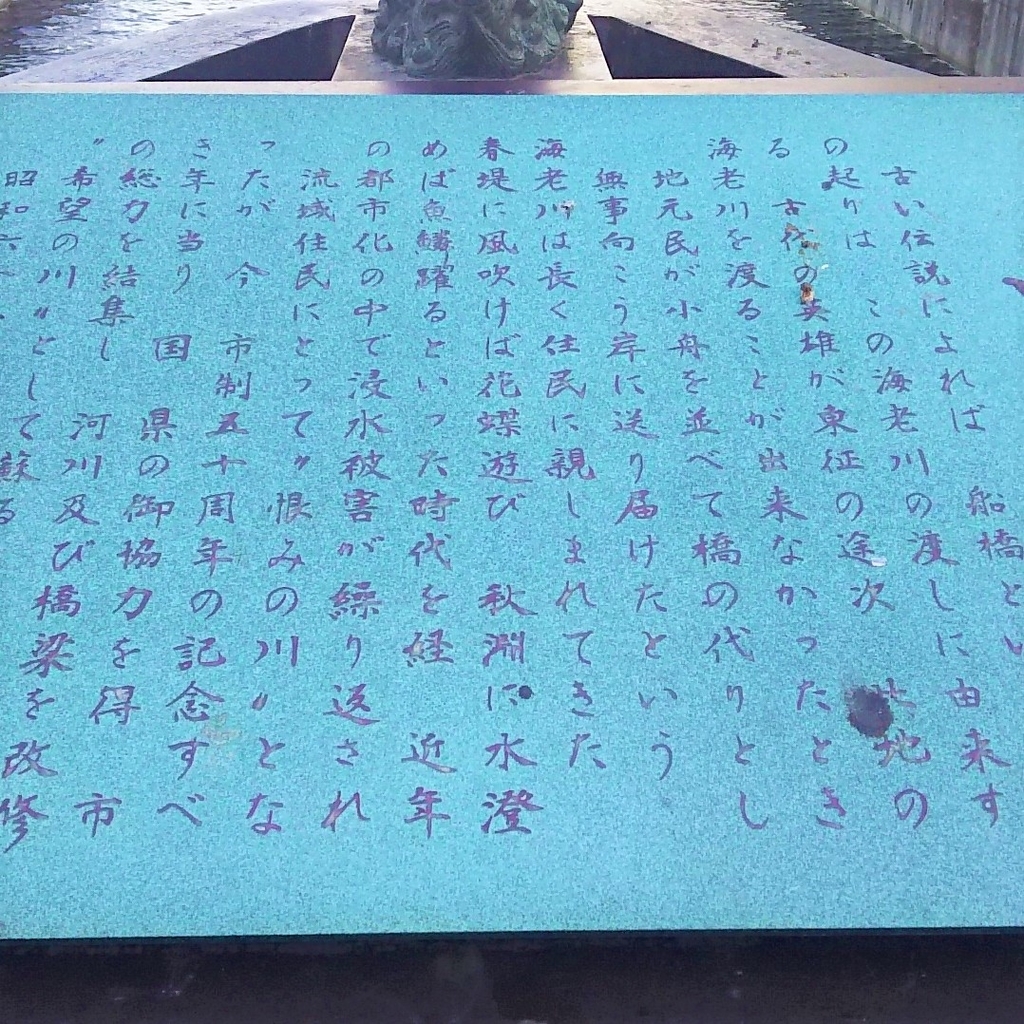 古い伝説によれば　船橋とい
の起りは　この海老川の渡しに由来す
る　古代の英雄が東征の途次　此地の
海老川を渡ることが出来なかったとき
地元民が小舟を並べて橋の代りとし
無事向こう岸に送り届けたという
海老川は長く住民に親しまれてきた
春堤に風吹けば花蝶遊び　秋淵に水澄
めば魚鱗躍るといった時代を経　近年
の都市化の中で浸水被害が繰り返され
流域住民にとって〃恨みの川〃とな
ったが　今　市制五十周年の記念すべ
き年に当り　国　県の御協力を得　市
の総力を結集し　河川及び橋梁を改修
〃希望の川〃として蘇る
昭和六